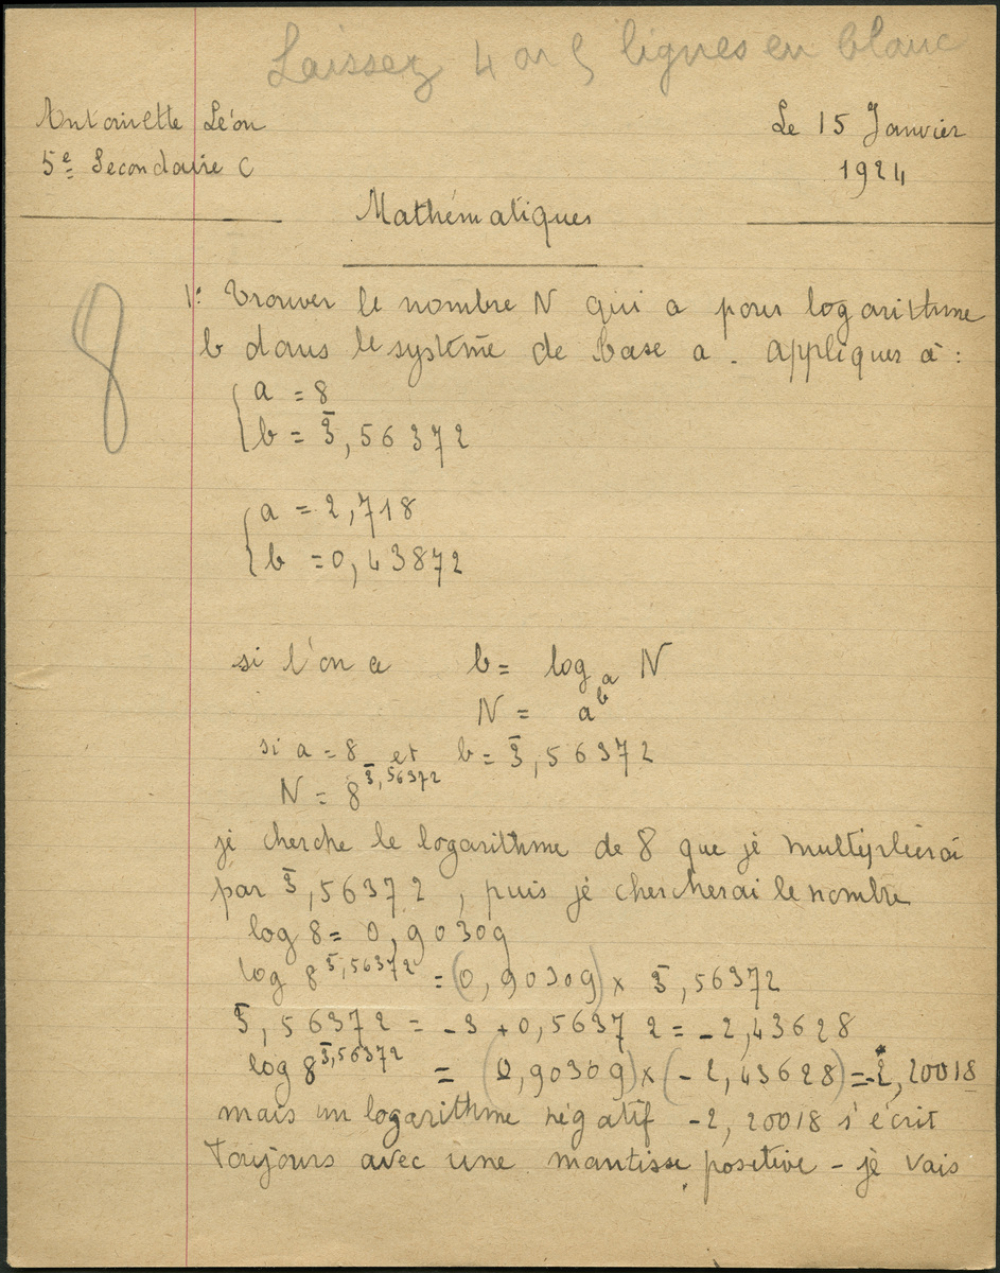 Laissez 4 ou 5 lignes en blanc
Antoinette Léon
Le 15 Janvier
5e Secondaire C
1924
Mathématiques
8
1: Trouver le nombre N qui a pour logarithme
b dans le système de base a. Appliquer à :
a = 8
b = 3̅,56372
a = 2,718
b = 0,43872
si l'on a b = log_a N
N = a^b
si a = 8 et b = 3̅,56372
N = 8^3̅,56372
je cherche le logarithme de 8 que je multiplierai
par 3̅,56372, puis je chercherai le nombre
log 8 = 0,90309
log 8^3̅,56372 = (0,90309) x 3̅,56372
3̅,56372 = -3 + 0,56372 = -2,43628
log 8^3̅,56372 = (0,90309) x (-2,43628) = -2,20018
mais un logarithme négatif -2,20018 s'écrit
toujours avec une mantisse positive - je vais